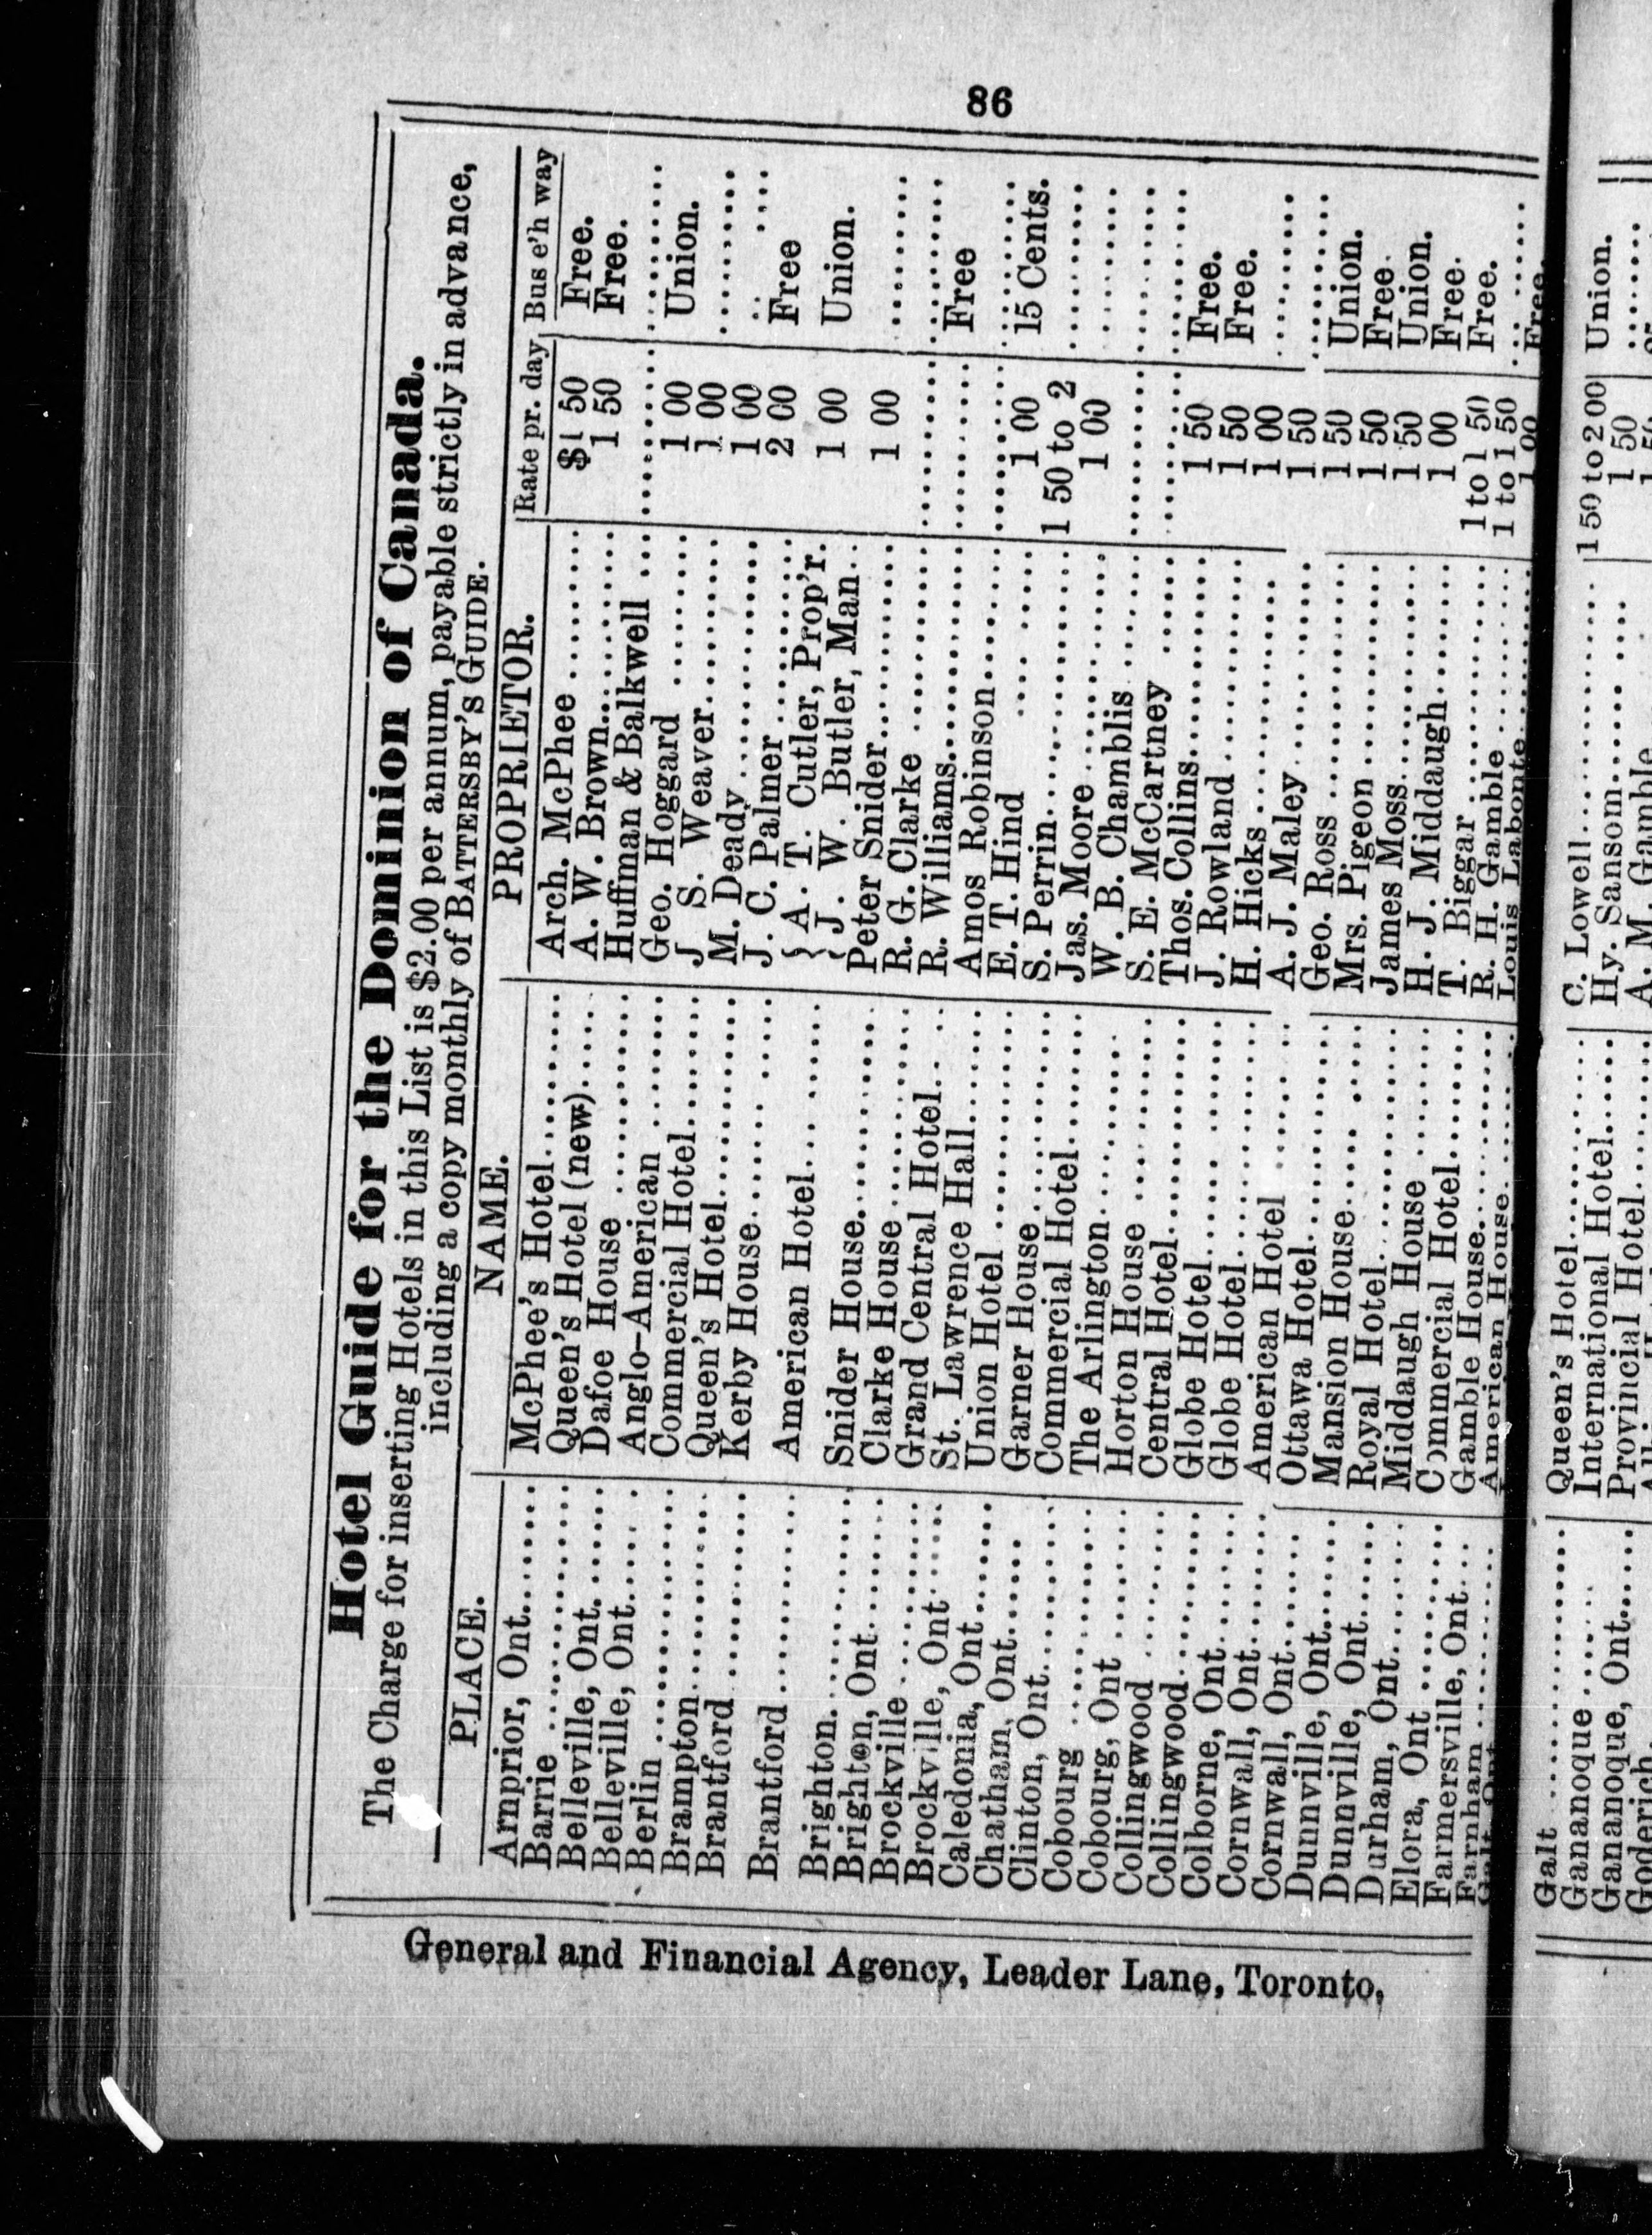 86
Hotel Guide for the Dominion of Canada.
The Charge for inserting Hotels in this List is $2.00 per annum, payable strictly in advance,
including a copy monthly of BATTERSBY'S GUIDE.
PLACE. NAME. PROPRIETOR. Rate pr. day Bus e'h way
Arnprior, Ont....... McPhee's Hotel.......... Arch. McPhee ........ $1 50 Free.
Barrie .............. Queen's Hotel (new)..... A. W. Brown.......... 1 50 Free.
Belleville, Ont....... Dafoe House ............ Huffman & Balkwell ... .......... ..........
Belleville, Ont..... . Anglo-American ......... Geo. Hoggard ......... 1 00 Union.
Berlin .............. Commercial Hotel........ J S. Weaver.......... 1 00 ..........
Brampton............ Queen's Hotel........... M. Deady............. 1 00 ..........
Brantford ........... Kerby House............. J. C. Palmer ......... 2 00 Free
Brantford ........... American Hotel.......... { A. T. Cutler, Prop'r. J. W. Butler, Man.. 1 00 Union.
Brighton............ Snider House............ Peter Snider.......... 1 00 ..........
Brighton, Ont....... Clarke House ........... R. G. Clarke ......... .......... ..........
Brockville .......... Grand Central Hotel.. .. R. Williams........... .......... Free
Brockville, Ont...... St. Lawrence Hall....... Amos Robinson........ .......... ..........
Caledonia, Ont...... Union Hotel ............ E. T. Hind .......... 1 00 15 Cents.
Chatham, Ont...... Garner House ........... S. Perrin............. 1 50 to 2 ..........
Clinton, Ont......... Commercial Hotel........ Jas. Moore ........... 1 00 ..........
Cobourg ............ The Arlington........... W. B. Chamblis ....... .......... ..........
Cobourg, Ont ....... Horton House ........... S. E. McCartney ...... .......... ..........
Collingwood ........ Central Hotel........... Thos. Collins.......... 1 50 Free.
Collingwood......... Globe Hotel............. J. Rowland ........... 1 50 Free.
Colborne, Ont....... Globe Hotel............. H. Hicks ............. 1 00 ..........
Cornwall, Ont....... American Hotel ......... A. J. Maley........... 1 50 ..........
Cornwall, Ont....... Ottawa Hotel............ Geo. Ross ............ 1 50 Union.
Dunnville, Ont...... Mansion House........... Mrs. Pigeon .......... 1 50 Free.
Dunnville, Ont...... Royal Hotel............. James Moss............ 1 50 Union.
Durham, Ont........ Middaugh House ......... H. J. Middaugh........ 1 00 Free.
Elora, Ont .......... Commercial Hotel........ T. Biggar ............ 1 to 1 50 Free.
Farmersville, Ont.... Gamble House............ R. H. Gamble ......... 1 to 1 50 ..........
Farnham ............ American House.......... Louis Labonte......... 1 00 Free.
General and Financial Agency, Leader Lane, Toronto,
Galt ................ Queen's Hotel........... C. Lowell............. 1 50 to 2 00 Union.
Gananoque ......... International Hotel...... Hy. Sansom........... 1 50 ..........
Gananoque, Ont..... Provincial Hotel......... A. M. Gamble
Goderich